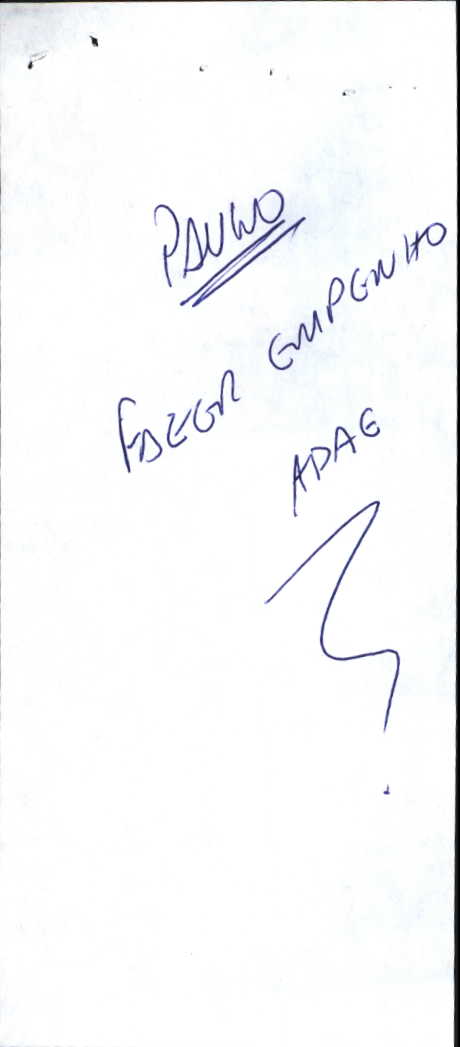 PAULO
FAZER EMPENHO
APAE